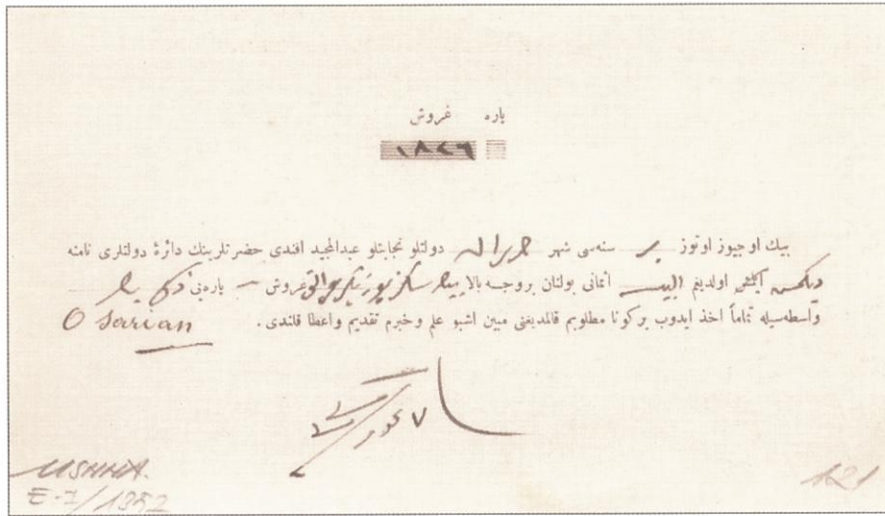 پاره غروش
١٨٢٦
بيك اوچيوز اوتوز بر سنه‌سى شهر حزيران دولتلو نجابتلو عبدالمجيد افندى حضرتلرينك دائرۀ دولتلرى نامنه
اولديغم البسه اثمانى بولنان بر وجه بالا بيك سكز يوز يكرمى التى غروش پاره‌يى
واسطه‌سيله تماماً اخذ ايدوب بر كونا مطلوبم قالمديغنى مبين اشبو علم و خبرم تقديم واعطا قلندى.
O Sarian
E-I/1352
121